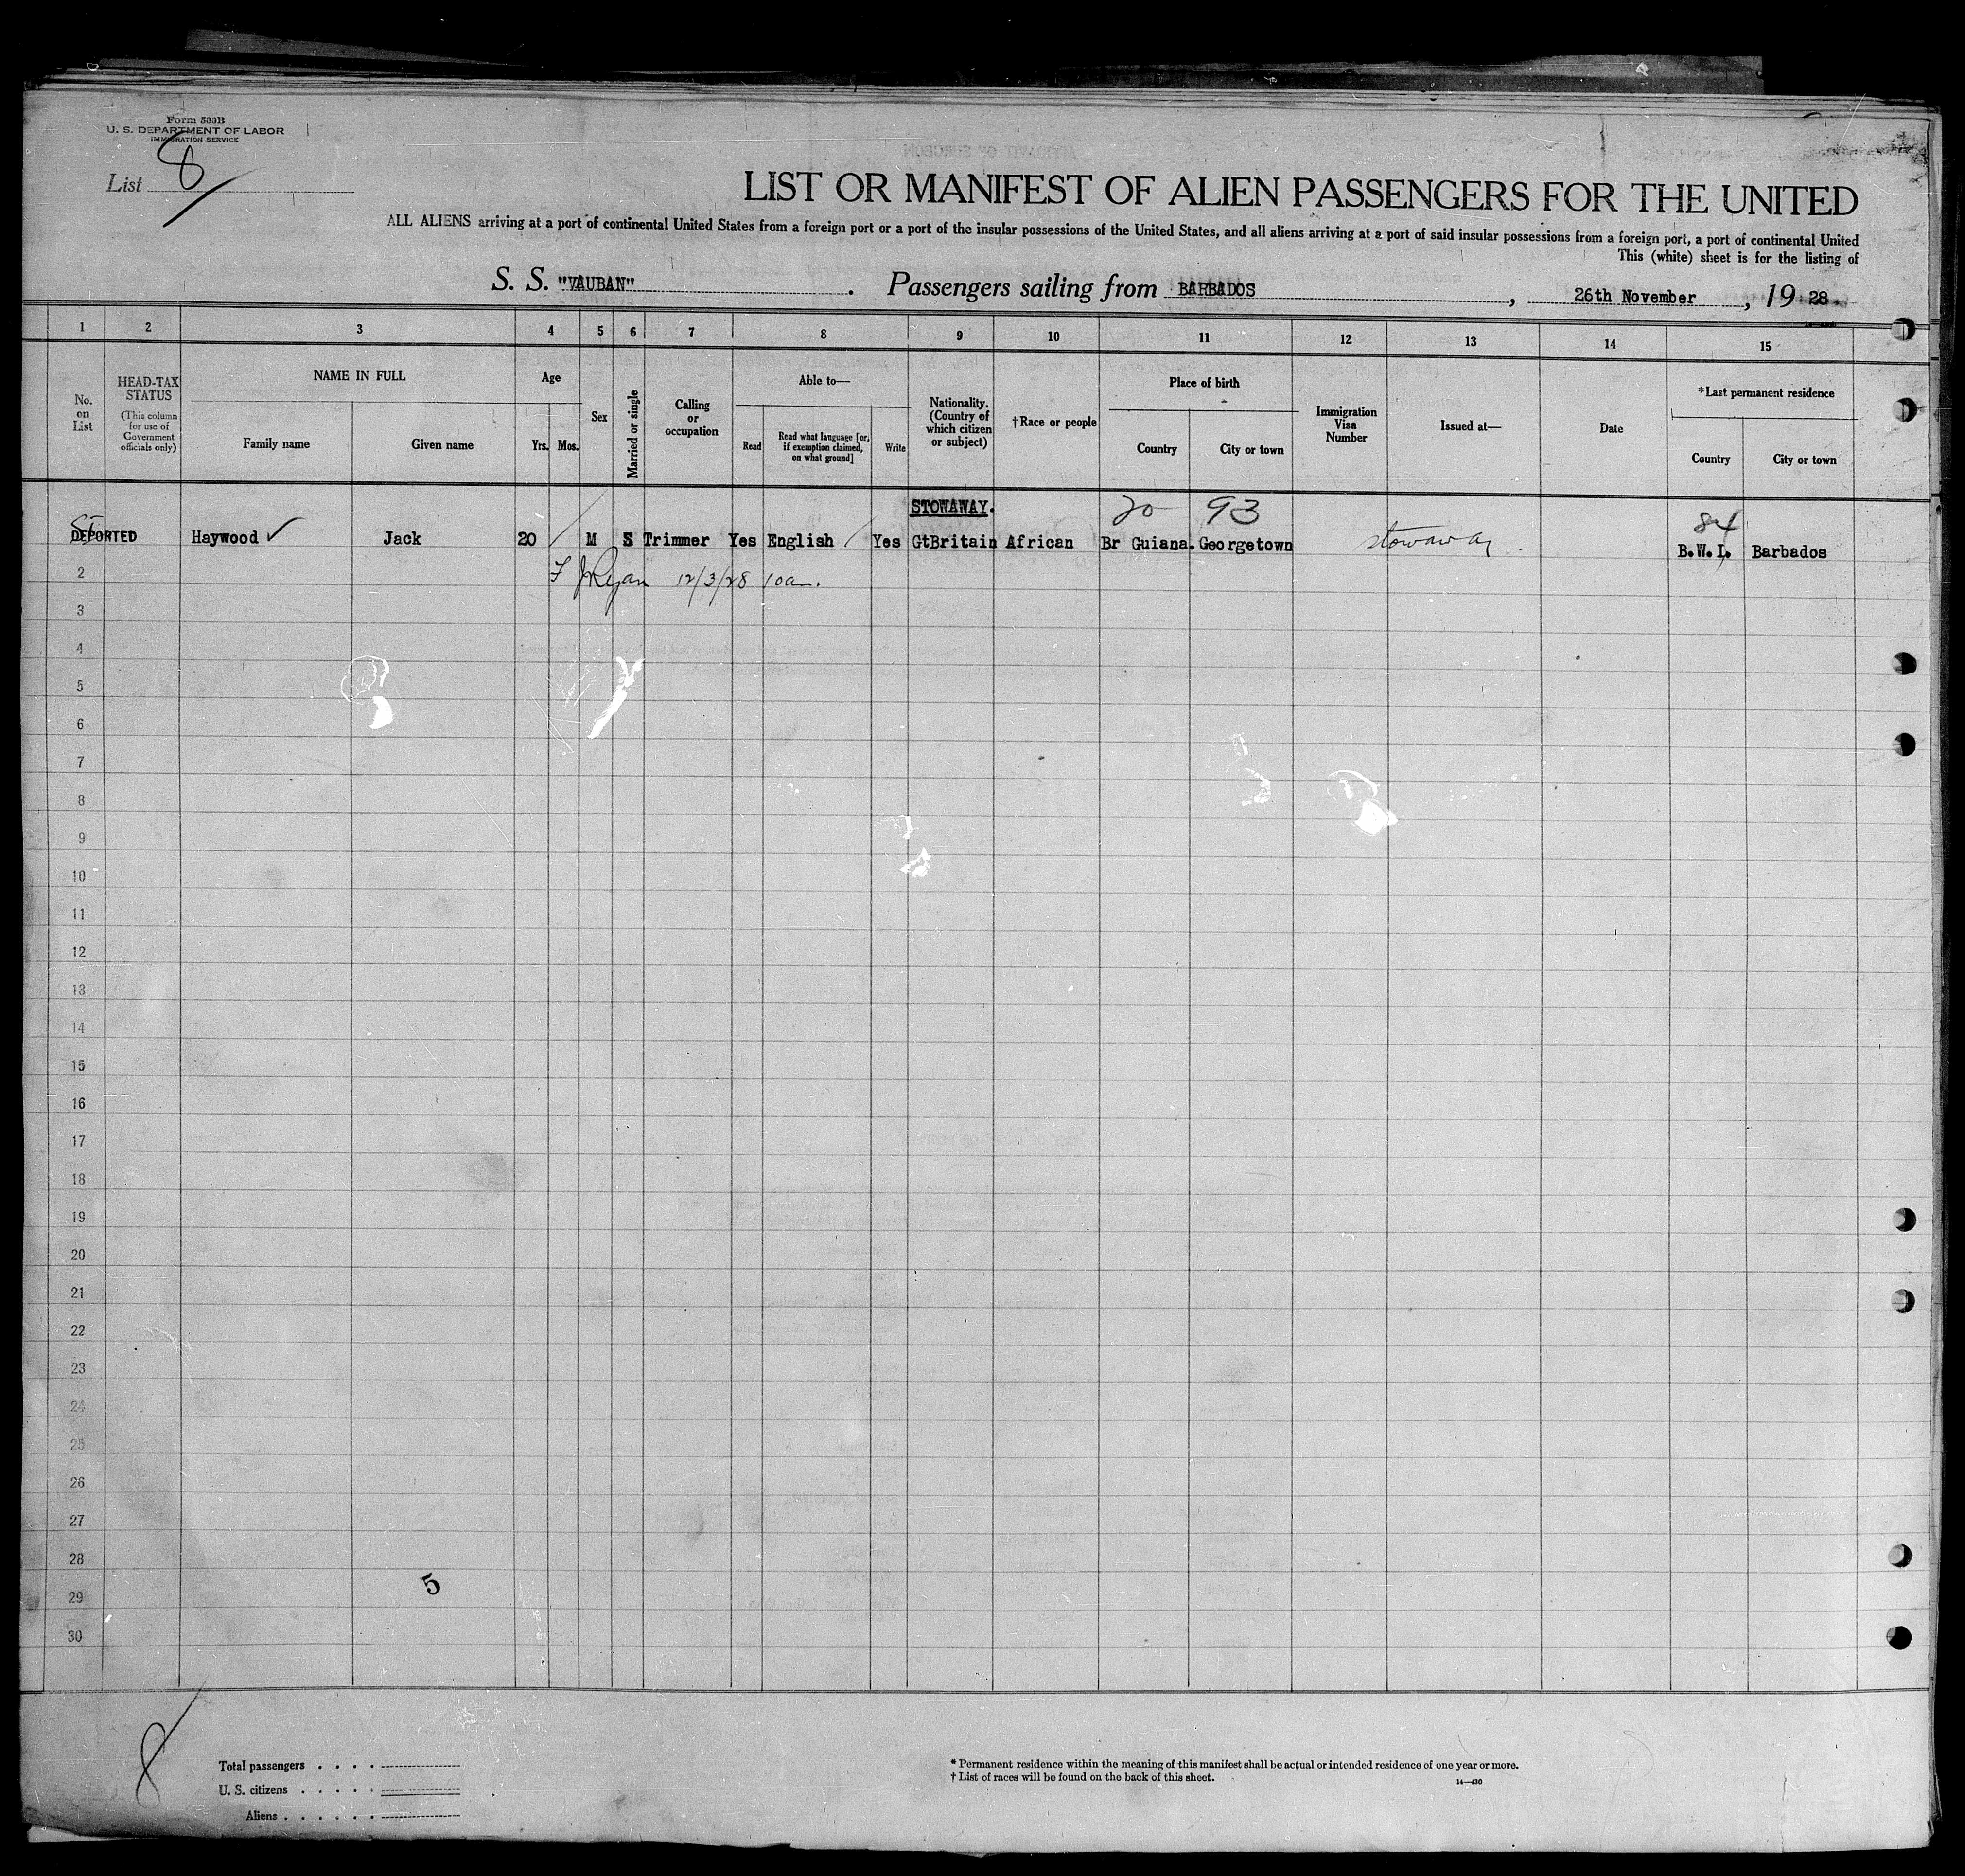 Form 500B
U. S. DEPARTMENT OF LABOR
IMMIGRATION SERVICE
List 8
LIST OR MANIFEST OF ALIEN PASSENGERS FOR THE UNITED
ALL ALIENS arriving at a port of continental United States from a foreign port or a port of the insular possessions of the United States, and all aliens arriving at a port of said insular possessions from a foreign port, a port of continental United
This (white) sheet is for the listing of
S. S. "VAUBAN" . Passengers sailing from BARBADOS , 26th November , 19 28.
1 2 3 4 5 6 7 8 9 10 11 12 13 14 15
No. on List
HEAD-TAX STATUS
(This column for use of Government officials only)
NAME IN FULL
Family name
Given name
Age
Yrs. Mos.
Sex
Married or single
Calling or occupation
Able to—
Read
Read what language [or, if exemption claimed, on what ground]
Write
Nationality. (Country of which citizen or subject)
†Race or people
Place of birth
Country
City or town
Immigration Visa Number
Issued at—
Date
*Last permanent residence
Country
City or town
STOWAWAY. 20 93 84
DEPORTED Haywood ✓ Jack 20 M S Trimmer Yes English Yes GtBritain African Br Guiana. Georgetown stowaway B.W.I. Barbados
2 F J Ryan 12/3/28 10am.
3
4
5
6
7
8
9
10
11
12
13
14
15
16
17
18
19
20
21
22
23
24
25
26
27
28
5
29
30
8
Total passengers . . . .
U. S. citizens . . . . .
Aliens . . . . . .
* Permanent residence within the meaning of this manifest shall be actual or intended residence of one year or more.
† List of races will be found on the back of this sheet.
14—430